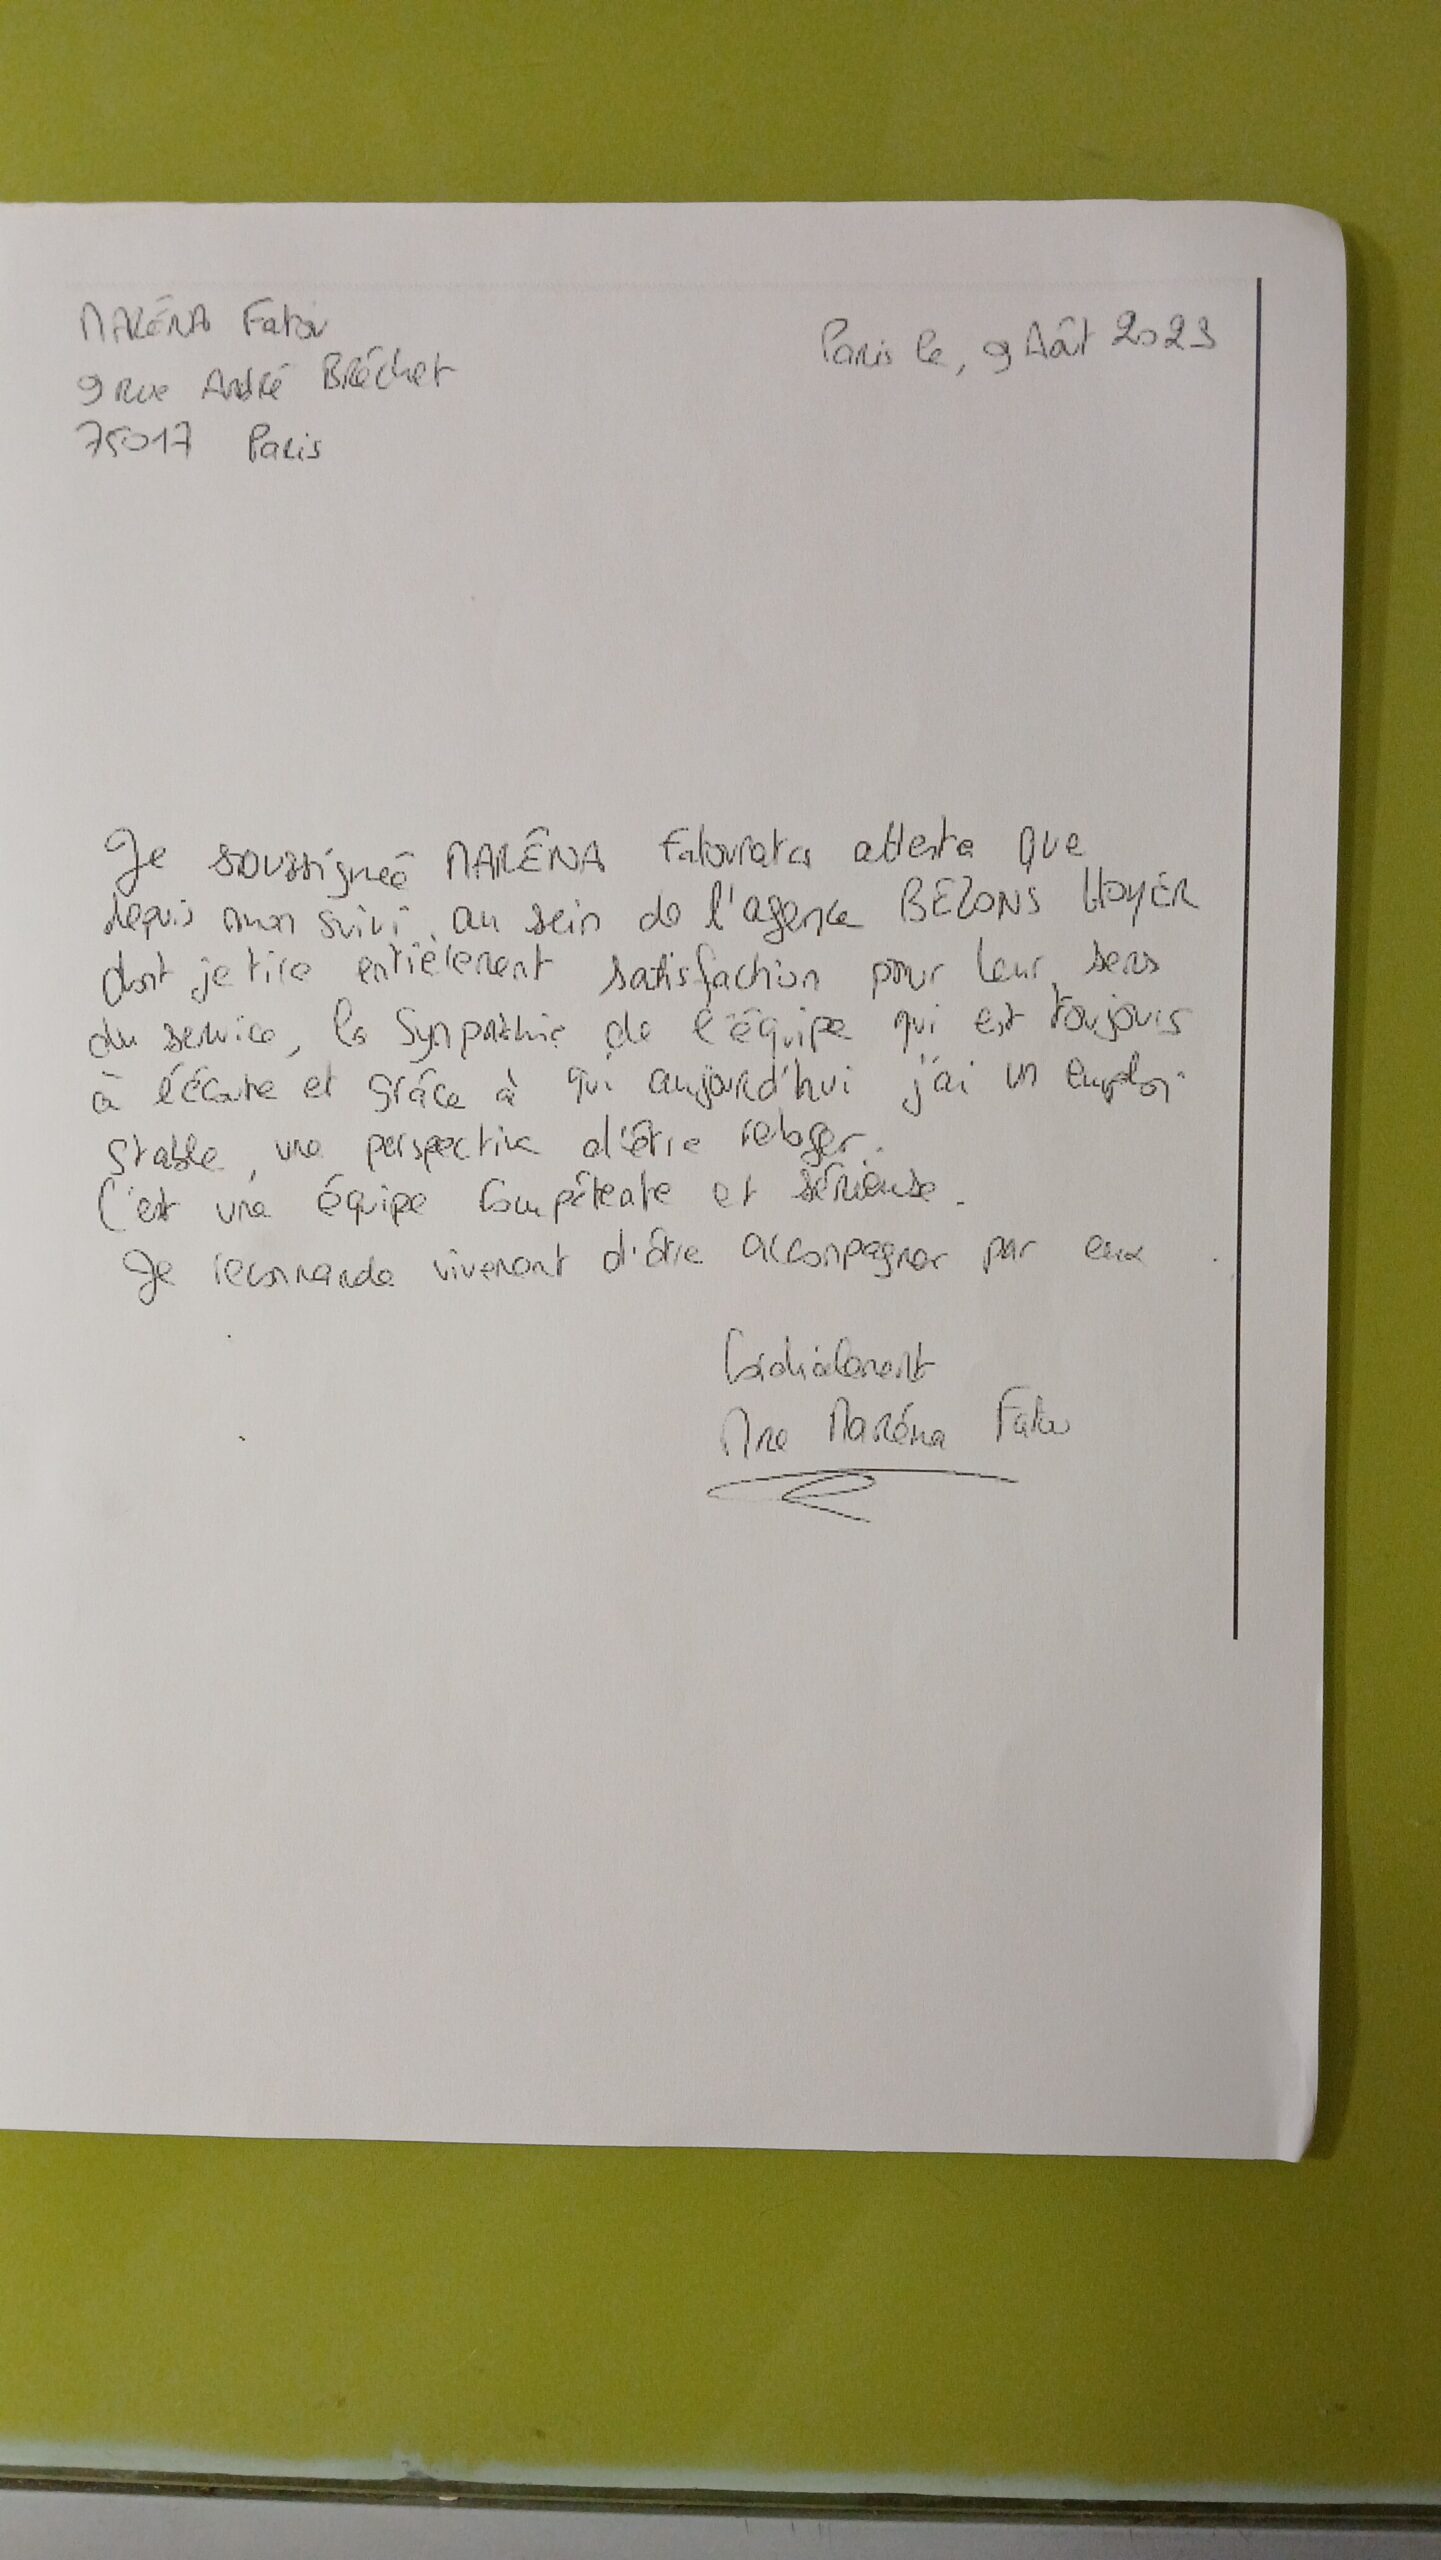 MARÉNA Fatou
Paris le, 9 Aôut 2023
9 rue André Bréchet
75017 Paris
Je soussignée MARÉNA Fatoumata atteste que
depuis mon suivi au sein de l'agence BEZONS
dont je tire entièrement satisfaction pour leur sens
du service, la sympathie de l'équipe qui est toujours
à l'écoute et grâce à qui aujourd'hui j'ai un emploi
stable, une perspective d'être reloger.
C'est une équipe compétente et sérieuse.
Je recommande vivement d'être accompagner par eux.
Cordialement
Mme Maréna Fatou